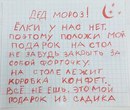 ДЕД МОРОЗ!
ЁЛКИ У НАС НЕТ.
ПОЭТОМУ ПОЛОЖИ МОЙ
ПОДАРОК НА СТОЛ
НЕ ЗАБУДЬ ЗАКРЫТЬ ЗА
СОБОЙ ФОРТОЧКУ.
НА СТОЛЕ ЛЕЖИТ
КОРОБКА КОНФЕТ.
ВСЁ НЕ ЕШЬ, ЭТО МОЙ
ПОДАРОК ИЗ САДИКА